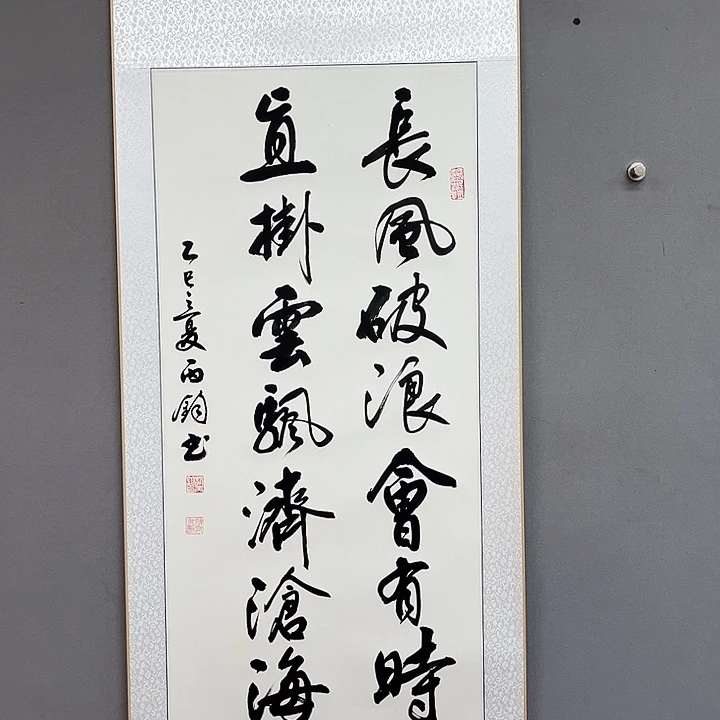 長風破浪會有時
直掛雲颿濟滄海
乙巳之夏雨鈞書